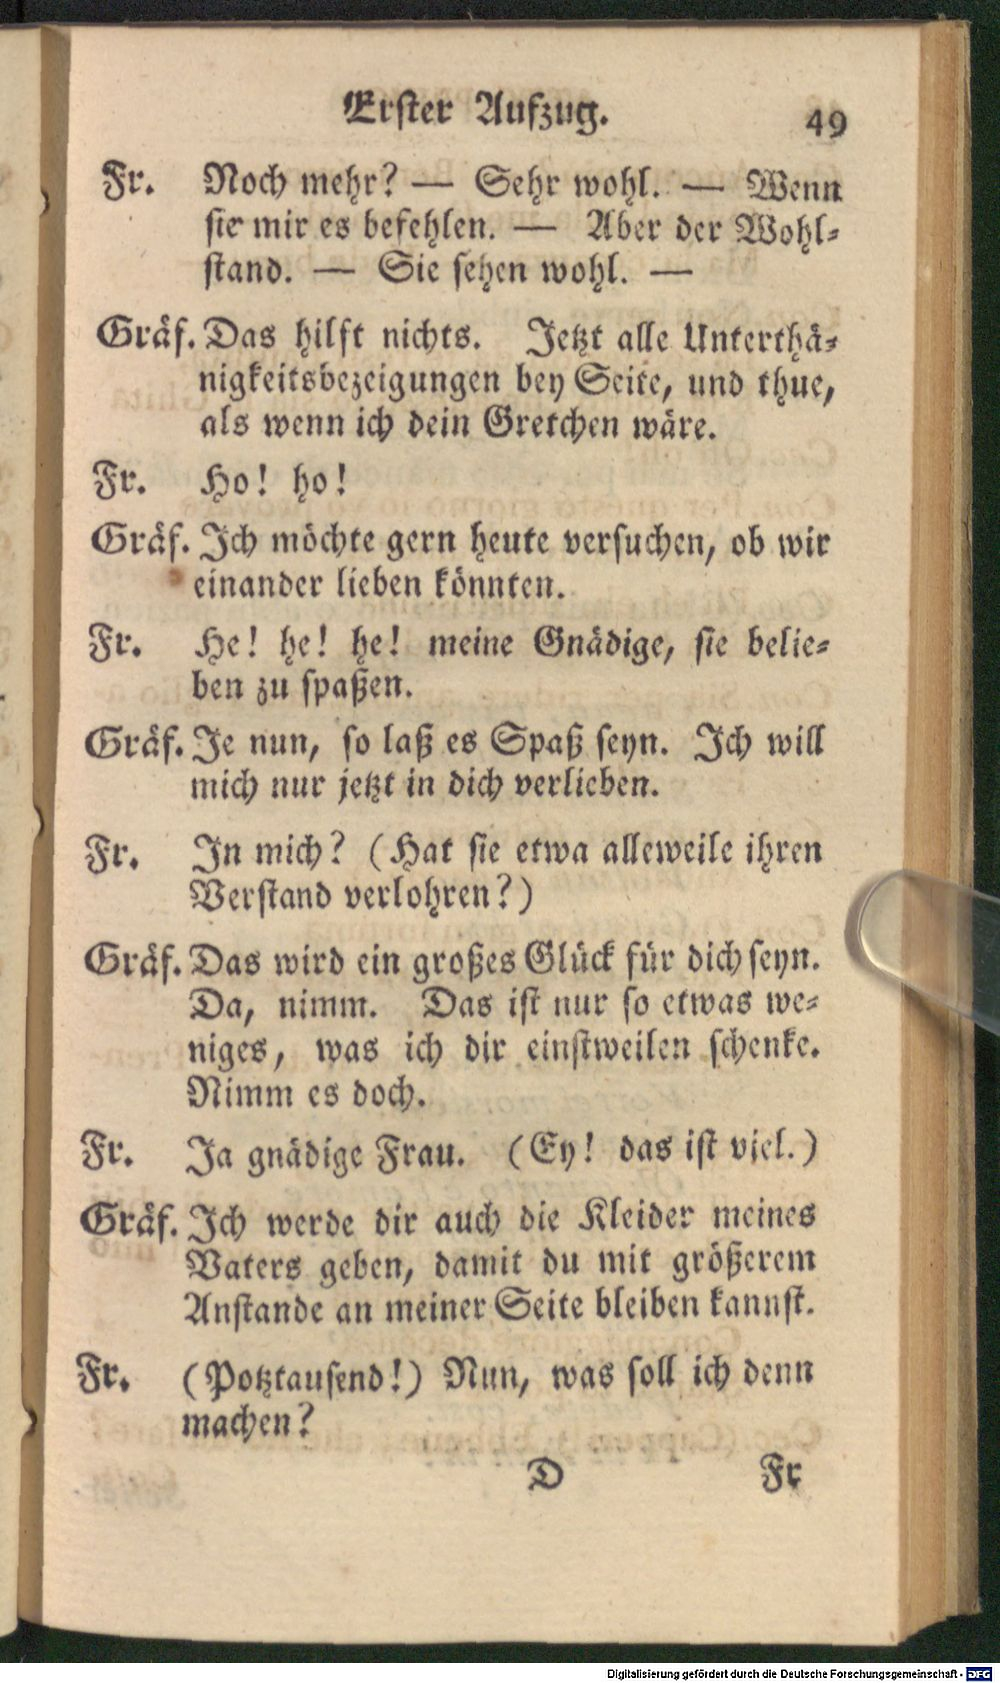 Erster Aufzug. 49
Fr. Noch mehr? — Sehr wohl. — Wenn
sie mir es befehlen. — Aber der Wohl-
stand. — Sie sehen wohl. —
Gräf. Das hilft nichts. Jetzt alle Unterthä-
nigkeitsbezeigungen bey Seite, und thue,
als wenn ich dein Gretchen wäre.
Fr. Ho! ho!
Gräf. Ich möchte gern heute versuchen, ob wir
einander lieben könnten.
Fr. He! he! he! meine Gnädige, sie belie-
ben zu spaßen.
Gräf. Je nun, so laß es Spaß seyn. Ich will
mich nur jetzt in dich verlieben.
Fr. In mich? (Hat sie etwa alleweile ihren
Verstand verlohren?)
Gräf. Das wird ein großes Glück für dich seyn.
Da, nimm. Das ist nur so etwas we-
niges, was ich dir einstweilen schenke.
Nimm es doch.
Fr. Ja gnädige Frau. (Ey! das ist viel.)
Gräf. Ich werde dir auch die Kleider meines
Vaters geben, damit du mit größerem
Anstande an meiner Seite bleiben kannst.
Fr. (Potztausend!) Nun, was soll ich denn
machen?
D Fr
Digitalisierung gefördert durch die Deutsche Forschungsgemeinschaft - DFG